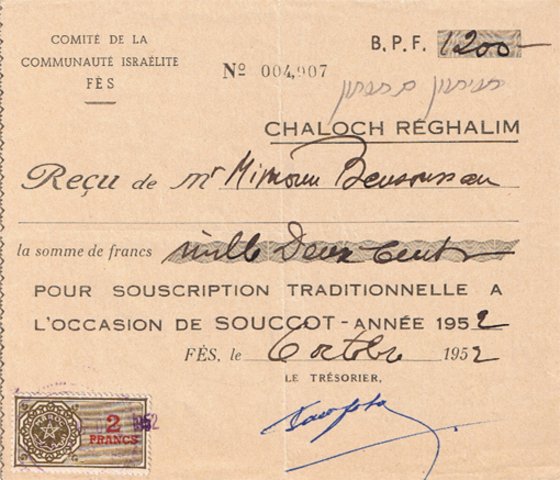 COMITÉ DE LA
COMMUNAUTÉ ISRAÉLITE
FÈS
B. P. F. 1200-
Nº 004,907
CHALOCH REGHALIM
Reçu de Mr Mimoun Bensoussan
la somme de francs mille Deux cents
POUR SOUSCRIPTION TRADITIONNELLE A
L'OCCASION DE SOUCCOT - ANNÉE 1952
FÈS, le 6 octobre 1952
LE TRÉSORIER,
MAROC
2
FRANCS